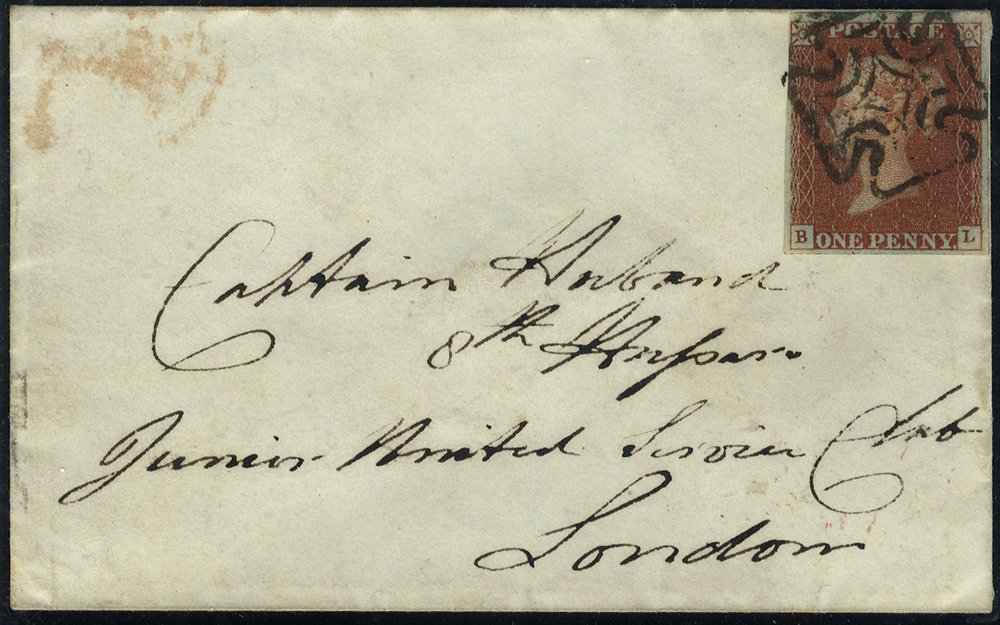 POSTAGE
B ONE PENNY. L
Captain Huband
8th Hussars
Junior United Service Club
London